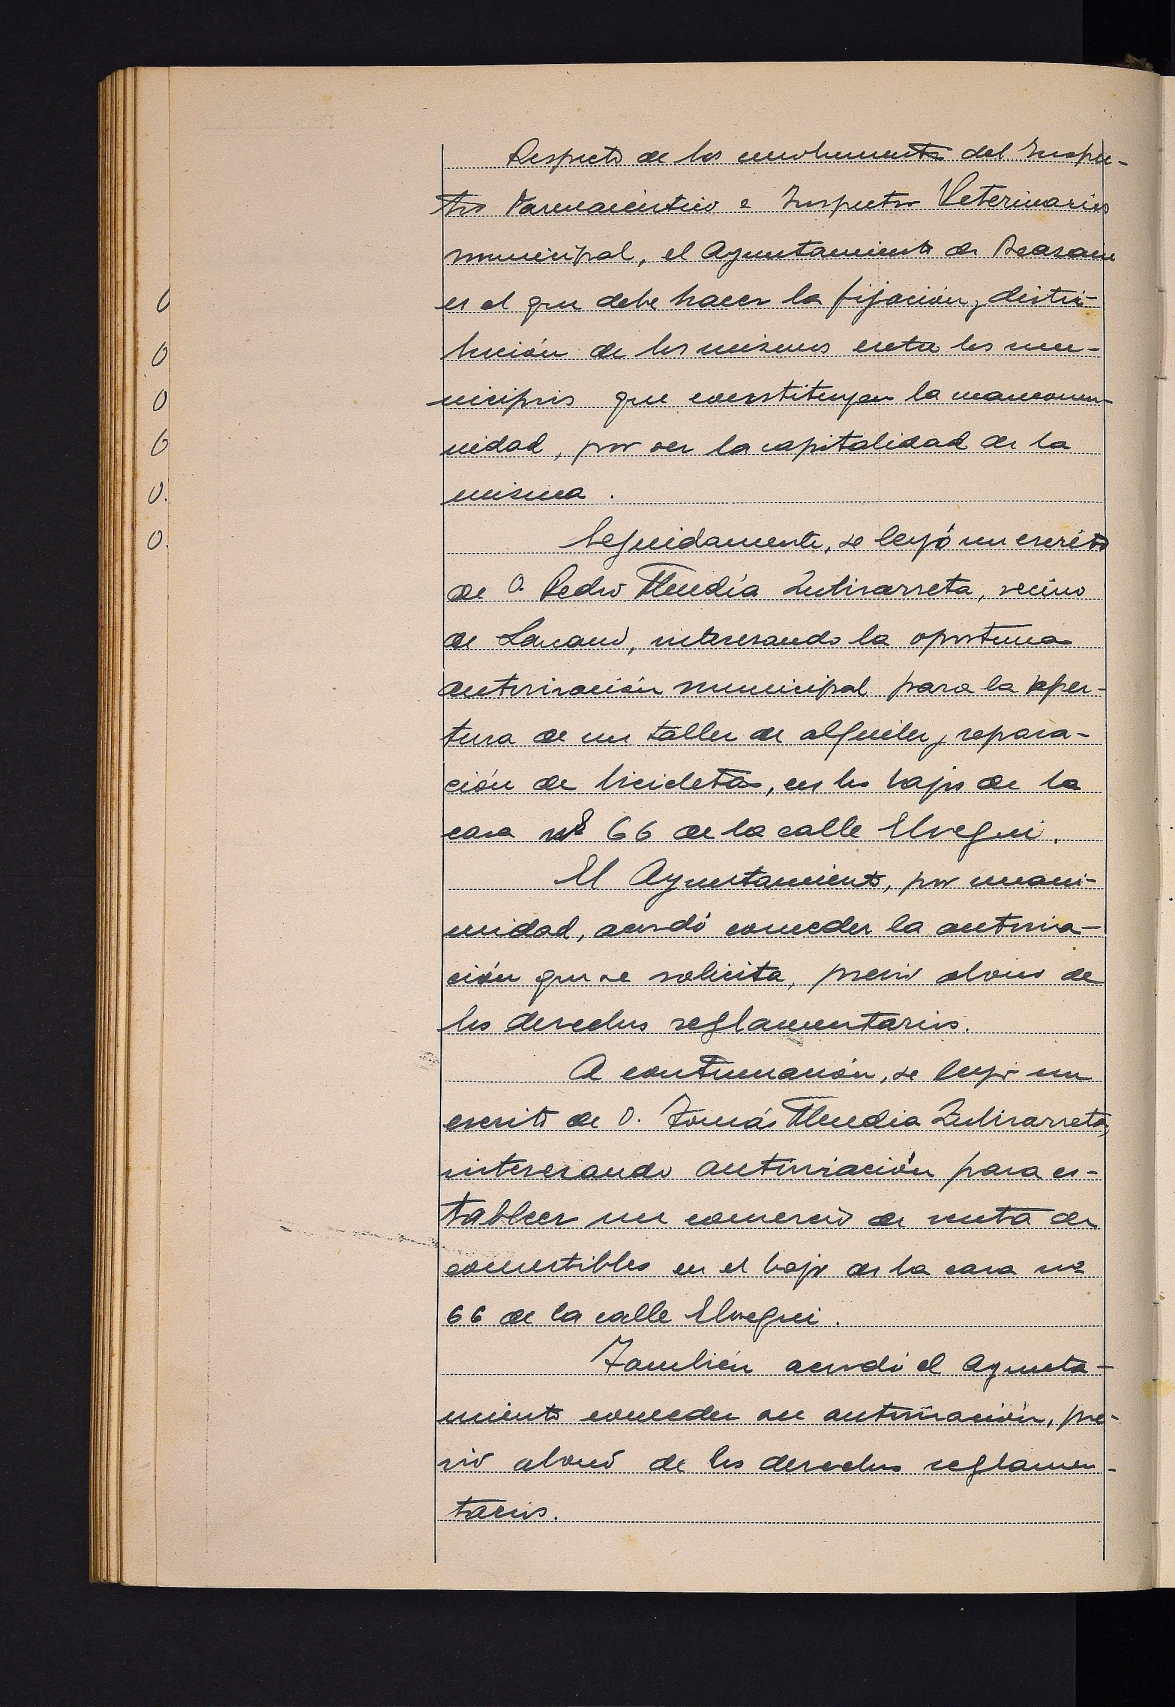 Respecto de los emolumentos del Inspec-
tor Farmacéutico e Inspector Veterinario
municipal, el Ayuntamiento de Beasain
es el que debe hacer la fijación y distri-
bución de los mismos entre los mu-
nicipios que constituyen la mancomu-
nidad, por ser la capitalidad de la
misma.
Seguidamente, se leyó un escrito
de D. Pedro Mendía Zubizarreta, vecino
de Lazcano, interesando la oportuna
autorización municipal para la aper-
tura de un taller de alquiler y repara-
ción de bicicletas, en los bajos de la
casa nº 66 de la calle Elosegui.
El Ayuntamiento, por unani-
midad, acordó conceder la autoriza-
ción que se solicita, previo abono de
los derechos reglamentarios.
A continuación, se leyó un
escrito de D. Tomás Mendia Zubizarreta,
interesando autorización para es-
tablecer un comercio de venta de
comestibles en el bajo de la casa nº
66 de la calle Elosegui.
También acordó el Ayunta-
miento conceder su autorización, pre-
vio abono de los derechos reglamen-
tarios.